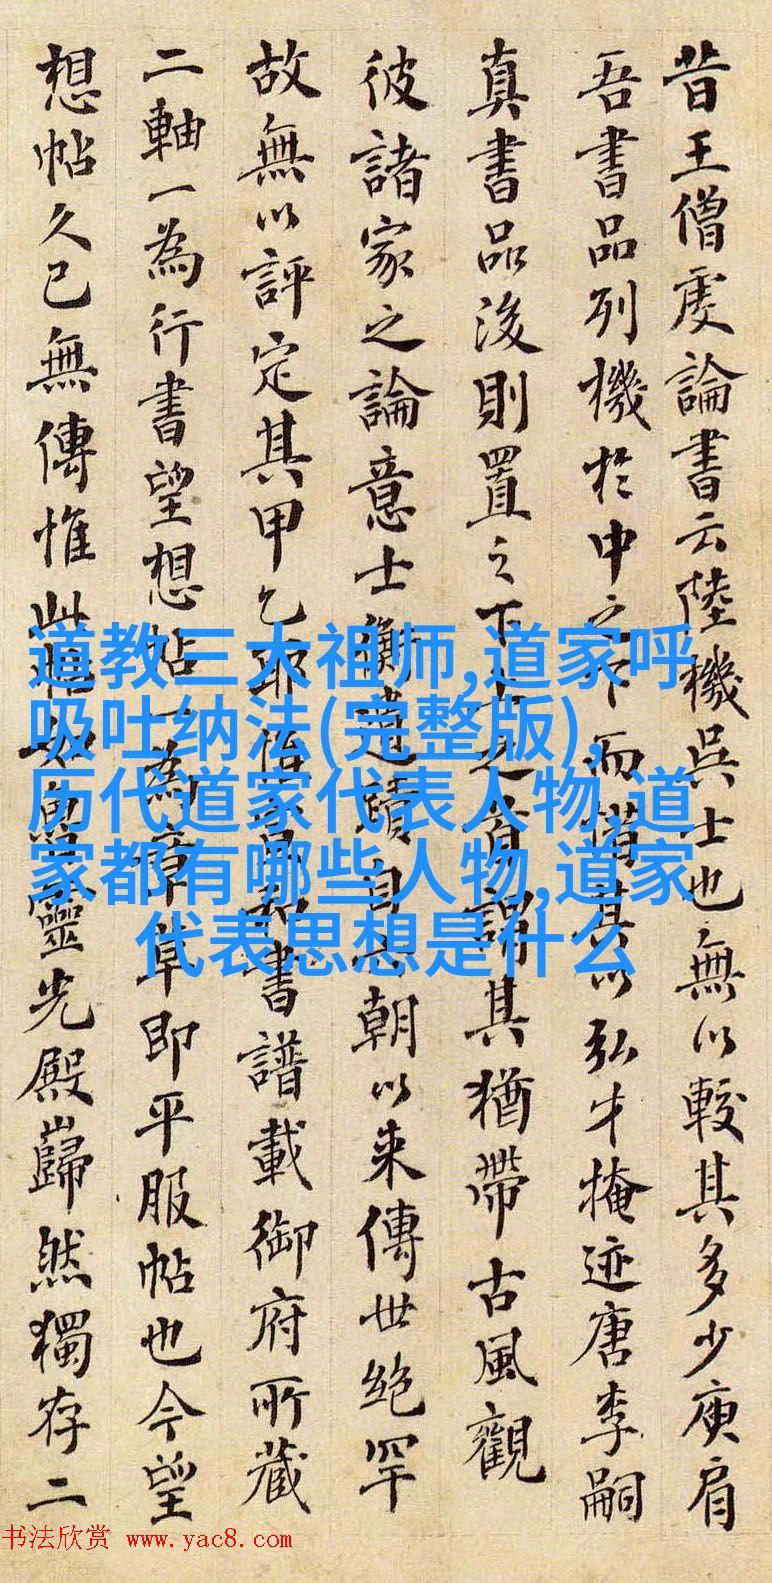 昔王僧虔論書云陸機吳士也無以較其多少庾肩
吾書品列機於中之下而惜其以弘才掩迹唐李嗣
真書品後則置之下上之首謂其猶帶古風觀
彼諸家之論意士衡遺蹟自六朝以来傳世絶罕
故無以評定其甲乙耶惟宣和書譜載御府所藏
二軸一為行書望想帖一為章草即平服帖也今望
想帖久已無傳惟此帖如魯靈光殿巋然獨存二
道教三大祖师,道家呼
吸吐纳法(完整版),
历代道家代表人物,道
家都有哪些人物,道家
代表思想是什么
书法欣赏 www.yac8.com